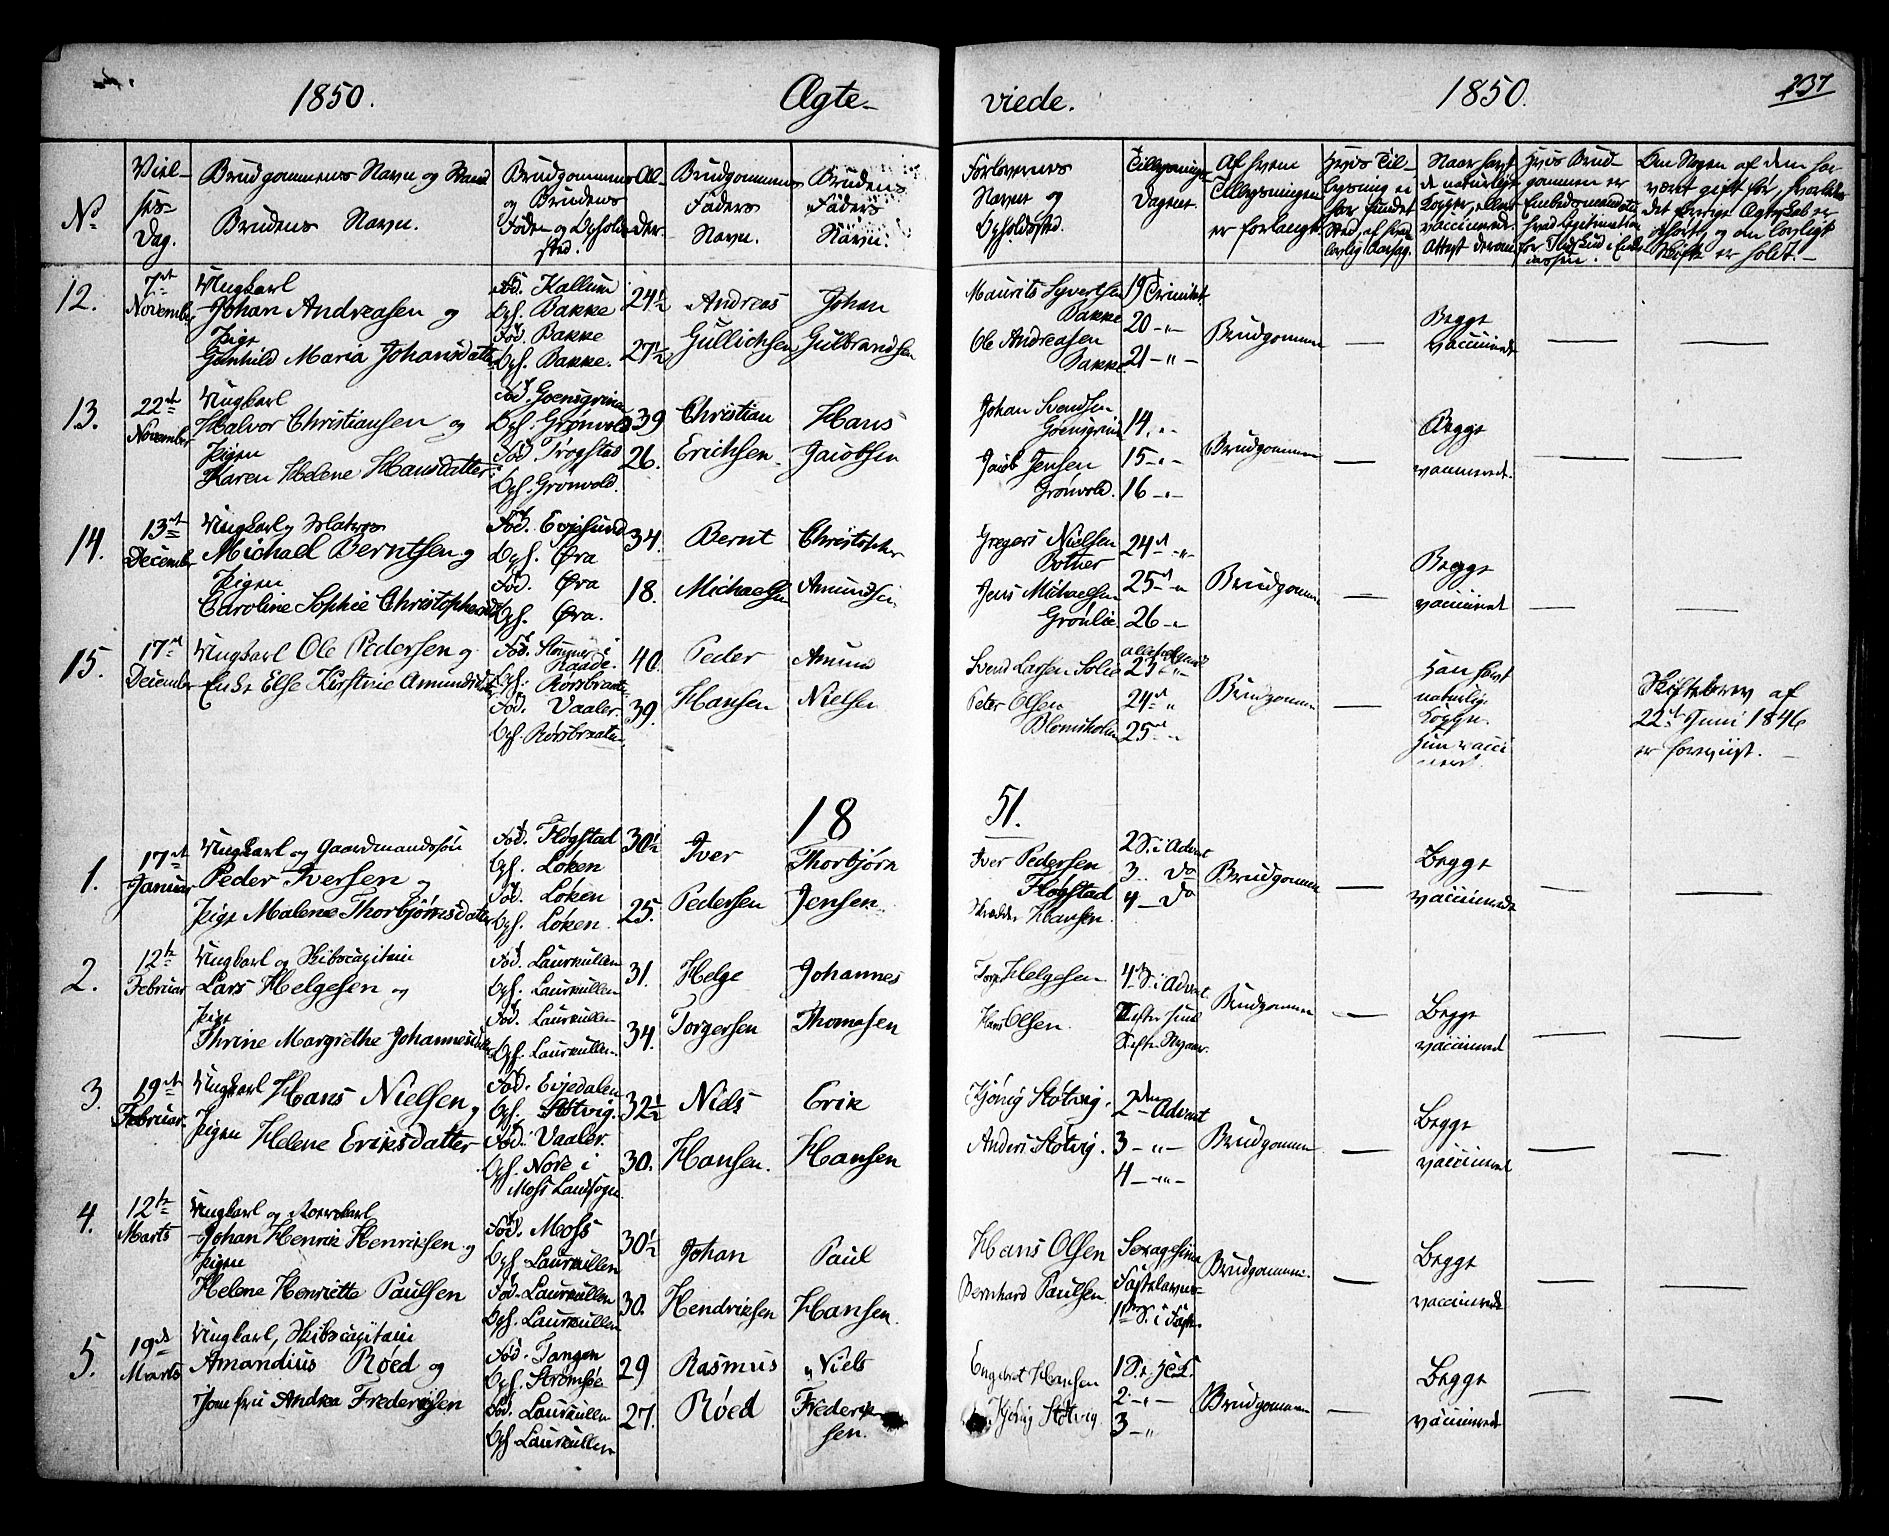 1850.
Ægte-
viede.
1850.
237
No
Viel-
ses-
Dag.
Brudgommens Navn og Stand
Brudens Navn.
Brudgommens
og Brudens
Føde og Opholds
sted.
Al-
der.
Brudgommens
Faders
Navn.
Brudens
Faders
Navn.
Forloverens
Navne og
Opholdssted.
Tillysnings
Dagene.
Af hvem
Tillysningen
er forlangt.
12.
7de
November
Ungkarl
Johan Andreasen og
Pige
Gunhild Maria Johansdatter
Fød. Kallum
Oph. Bakke
Fød. Bakke
Oph. Bakke.
24½
27½
Andreas
Gullichsen
Johan
Gulbrandsen
Maurits Syvertsen
Bakke
Ole Andreasen
Bakke
19 Trinitat
20 -"-
21 -"-
Brudgommen
—
Begge
vaccineret
—
—
13.
22de
November
Ungkarl
Halvor Christiansen og
Pigen
Karen Helene Hansdatter
Fød. Goensgrina
Oph. Grønvold
Fød. Trøgstad
Oph. Grønvold.
39
26.
Christian
Erichsen
Hans
Jacobsen
Johan Svendsen
Goensgrina
Jacob Jensen
Grønvold.
14. "-
15 -"-
16 -"-
Brudgommen
—
Begge
vaccineret.
—
—
14.
13de
December
Ungkarl og Matros
Michael Berntsen og
Pigen
Caroline Sophie Christophersd.
Fød. Evjesund
Oph. Øra
Fød. Øra
Oph. Øra.
34.
18.
Bernt
Michaelsen
Christopher
Amundsen
Gregers Nielsen
Botner
Jens Michaelsen
Grønlie.
24de -"-
25de -"
26 -"
Brudgommen
—
Begge
vaccineret
—
—
15.
17de
December
Ungkarl Ole Pedersen og
Enke Else Kirstine Amundsd.
Raade.
Oph. Rørsbraaten
Fød. Vaaler
Oph. Rørsbraaten.
40.
39.
Peder
Hansen
Amund
Nielsen
Svend Larsen Solie
Peter Olsen
Blomsholm
23de "-
24de "
25de "
Brudgommen
—
Han havt
naturlig
Kopper.
Hun vacci
neret.
Skiftebrev af
22de Juni 1846
er foreviist. —
18
51.
1.
17de
Januar
Ungkarl og Gaardmandssøn
Peder Iversen og
Pige Malene Thorbjørnsdatter
Fød. Fløgstad
Oph. Løken
Fød. Løken
Oph. Løken.
30½
25.
Iver
Pedersen
Thorbjørn
Jensen.
Iver Pedersen
Fløgstad
Hansen.
2 S. i Advent
3.. Do
4 — Do
Brudgommen
—
Begge
vaccinerede
—
—
2.
12te
Februar
Ungkarl og Skibscapitain
Lars Helgesen og
Pige
Thrine Margrethe Johannesdatter
Fød. Laurkullen
Oph. Laurkullen
Fød. Laurkullen
Oph. Laurkullen.
31.
34.
Helge
Torgersen
Johannes
Thomesen
Helgesen
Hans Olsen.
4de S. i Advent
S. efter Juul
S. efter Nyaar.
Brudgommen
—
Begge
vaccineret
—
—
3.
19de
Februar.
Ungkarl Hans Nielsen og
Pigen Helene Eriksdatter
Fød. Evjedalen
Oph. Støtvig.
Fød. Vaaler.
Oph. Nore i
Moss Landsogn
32½
30.
Niels
Hansen.
Erik
Hansen
Kjønig Støtvig.
Anders Støtvig.
2den Advent
3 -"-
4 -"-
Brudgommen
—
Begge
vaccineret
—
—
4.
12te
Marts
Ungkarl og
Johan Henrik Henriksen og
Pigen
Helene Henriette Paulsen
Fød. Moss
Oph. Laurkullen
Fød. Laurkullen
Oph. Laurkullen
30½
30.
Johan
Hendriksen
Paul
Hansen.
Hans Olsen
Bernhard Paulsen
Sexagesima
Fastelavns-
1ste S. i Faste.
Brudgommen.
—
Begge
vaccinerede
—
—
5.
19de
Marts
Ungkarl, Skibscapitain
Amandius Røed og
Jomfru Andrea Frederiksen
Fød. Tangen
Oph. Strømsøe
Fød. Laurkullen
Oph. Laurkullen
29
27.
Rasmus
Røed
Niels
Frederik
sen.
Engebret Hansen
Kjønig Støtvig
2 -"-
3 -"
Brudgommen
—
Begge
vaccineret
—
—